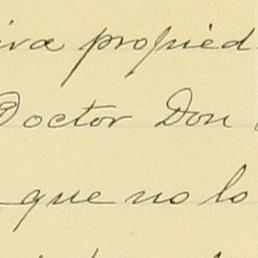 iva propied
Doctor Don
que no lo